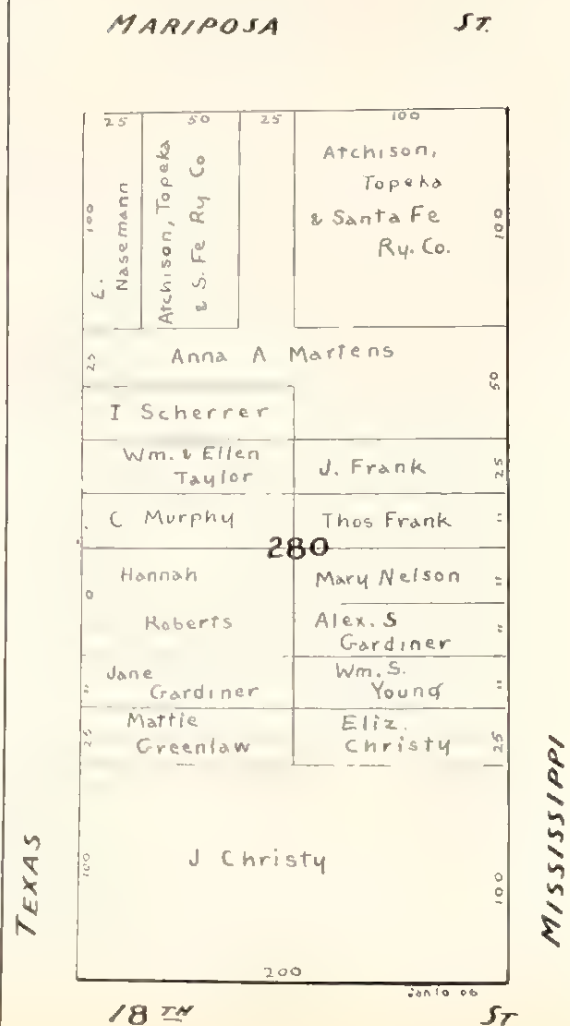 MARIPOSA ST.
25 50 25 100
E.
Nasemann
100
Atchison, Topeka
& S. Fe Ry Co
Atchison,
Topeka
& Santa Fe
Ry. Co.
100
25
Anna A Martens
50
I Scherrer
Wm. & Ellen
Taylor
J. Frank
25
C Murphy
Thos Frank
"
280
Hannah
Roberts
Mary Nelson
"
Alex. S
Gardiner
"
Jane
Gardiner
"
Wm. S.
Young
"
Mattie
Greenlaw
25
Eliz.
Christy
25
J Christy
100
100
200
TEXAS
MISSISSIPPI
18TH ST